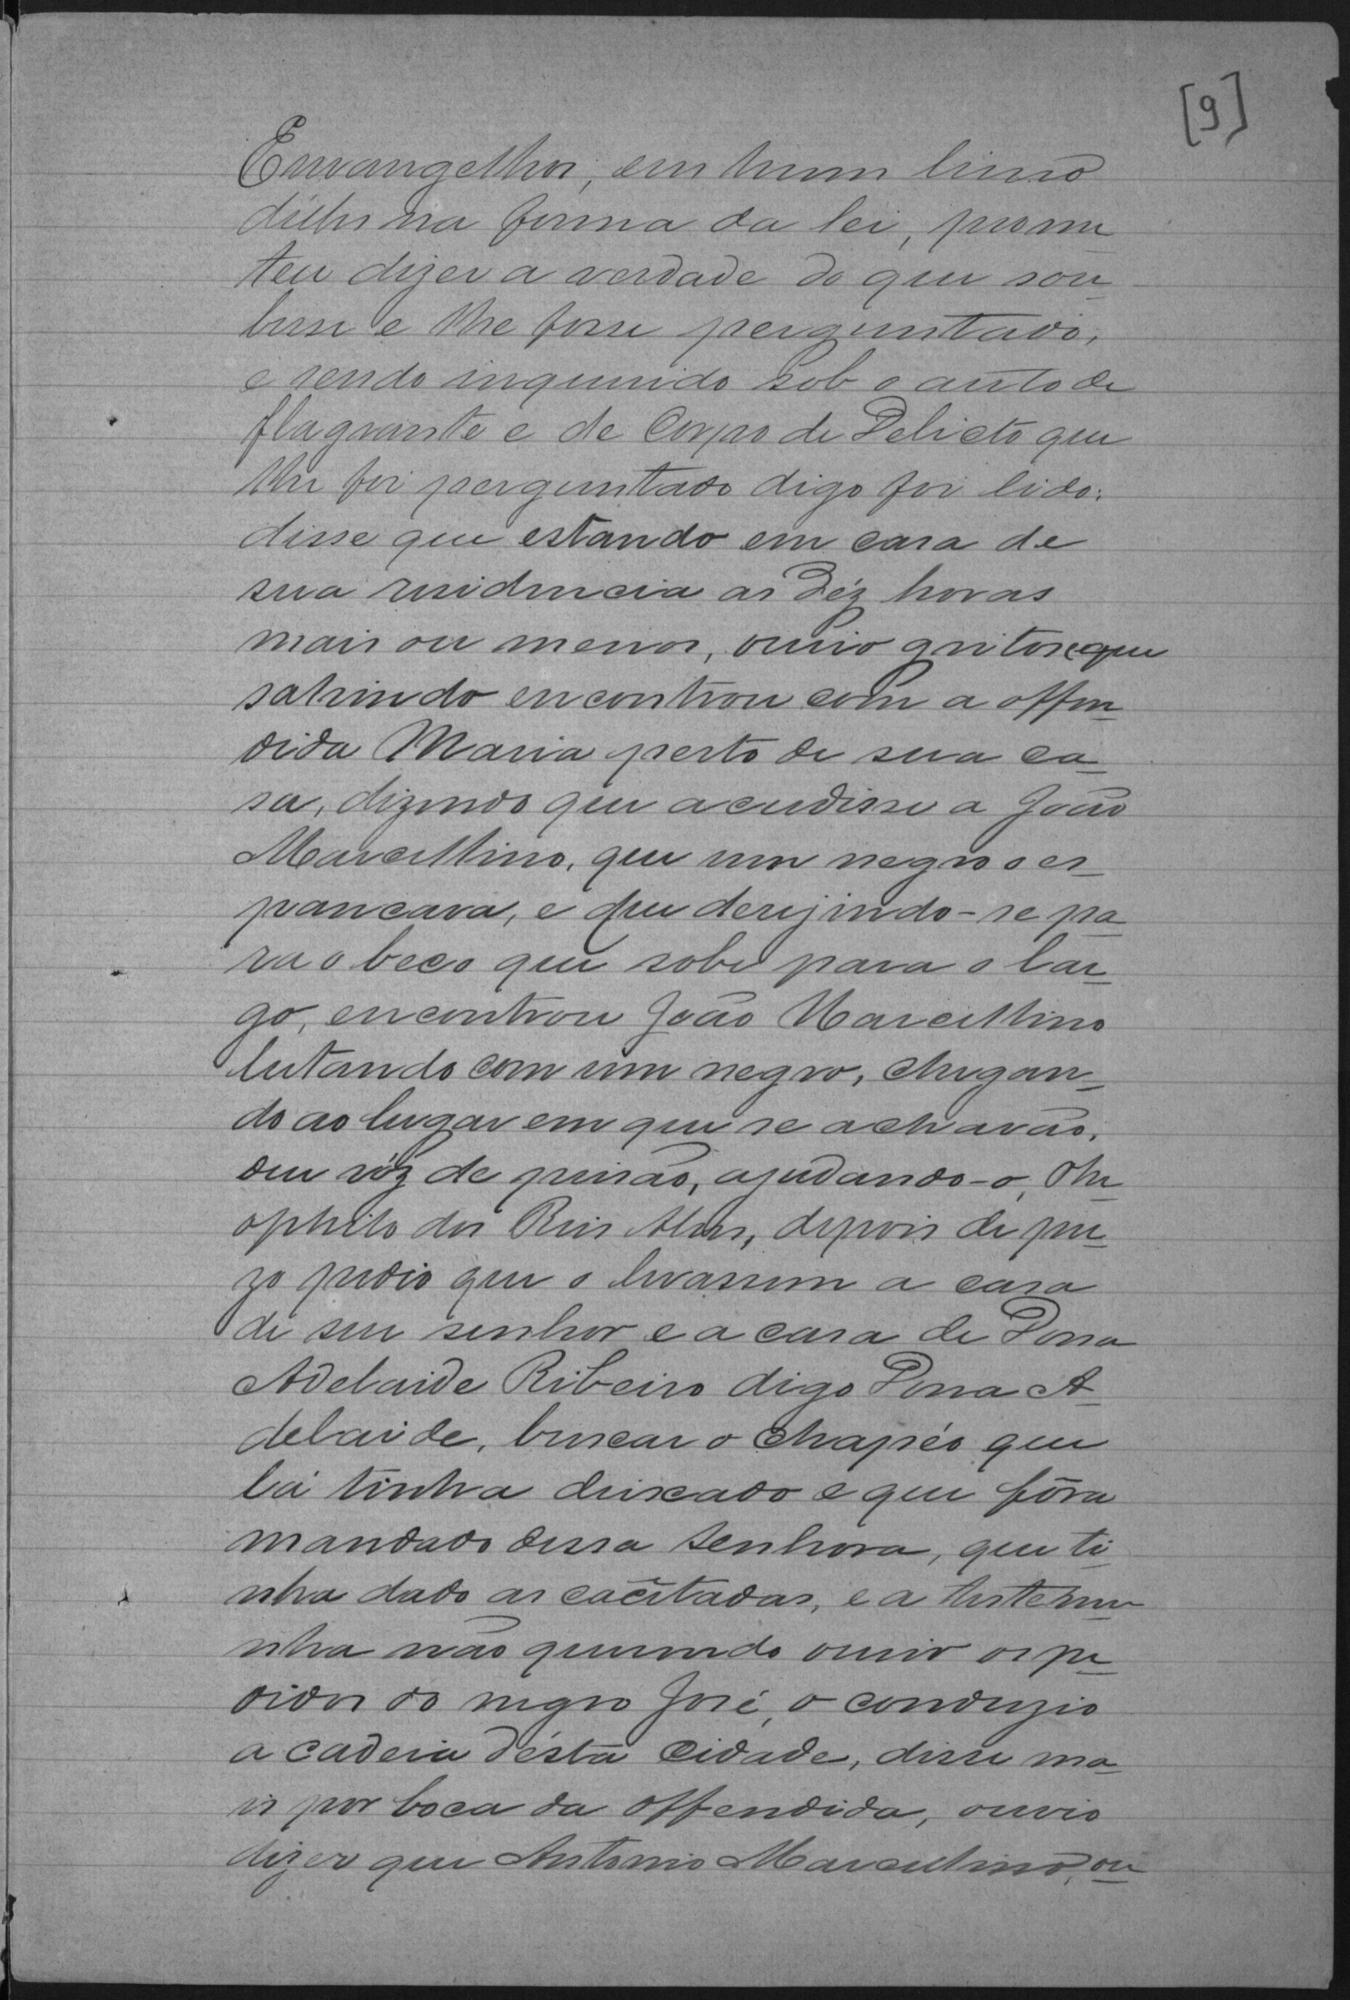 [9]
Envangelhos, em hum livro
délles na forma da lei, prome
teu dizer a verdade do que sou-
besse e lhe fosse perguntado,
e sendo inquirido sob o auto de
flagrante e de Corpo de Delicto que
lhe foi perguntado digo foi lido:
disse que estando em casa de
sua residencia as Déz horas
mais ou menos, ouvio gritos e que
sahindo encontrou com a offen-
dida Maria perto de sua ca-
sa, dizendo que acudisse a João
Marcellino, que um negro o es-
pancava, e que derijindo-se pa-
ra o beco que sobe para o lar-
go, encontrou João Marcellino
lutando com um negro, chegan-
do ao lugar em que se achavão,
deu vóz de prisão, ajudando-o, The-
ophilo dos Reis Alves, depois de pre-
zo pedio que o levassem a casa
de seu senhor e a casa de Dona
Adelaide Ribeiro digo Dona A-
delaide, buscar o chapéo que
lá tinha deixado e que fôra
mandado dessa Senhora, que ti-
nha dado as cacetadas, e a testemu-
nha não querendo ouvir os pe-
didos do negro José, o conduzio
a cadeia désta Cidade, disse ma-
is por boca da offendida, ouvio
dizer que Antonio Marcellino, ou-